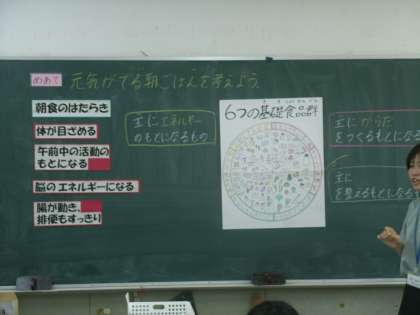 めあて 元気がでる朝ごはんを考えよう。
朝食のはたらき
体が目ざめる
午前中の活動の
もとになる
脳のエネルギーになる
腸が動き、
排便もすっきり
主にエネルギー
のもとになるもの
6つの基礎食品群
主にからだ
をつくるもとになる
主に
を整えるもとになる